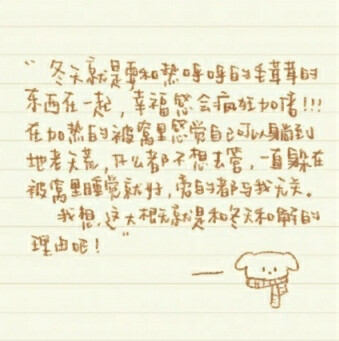 “冬天就是要和热呼呼的毛茸茸的
东西在一起，幸福感会疯狂加倍!!!
在加热的被窝里感觉自己可以躺到
地老天荒，什么都不想去管，一直躲在
被窝里睡觉就好，别的都与我无关。
我想，这大概就是和冬天和解的
理由吧！”